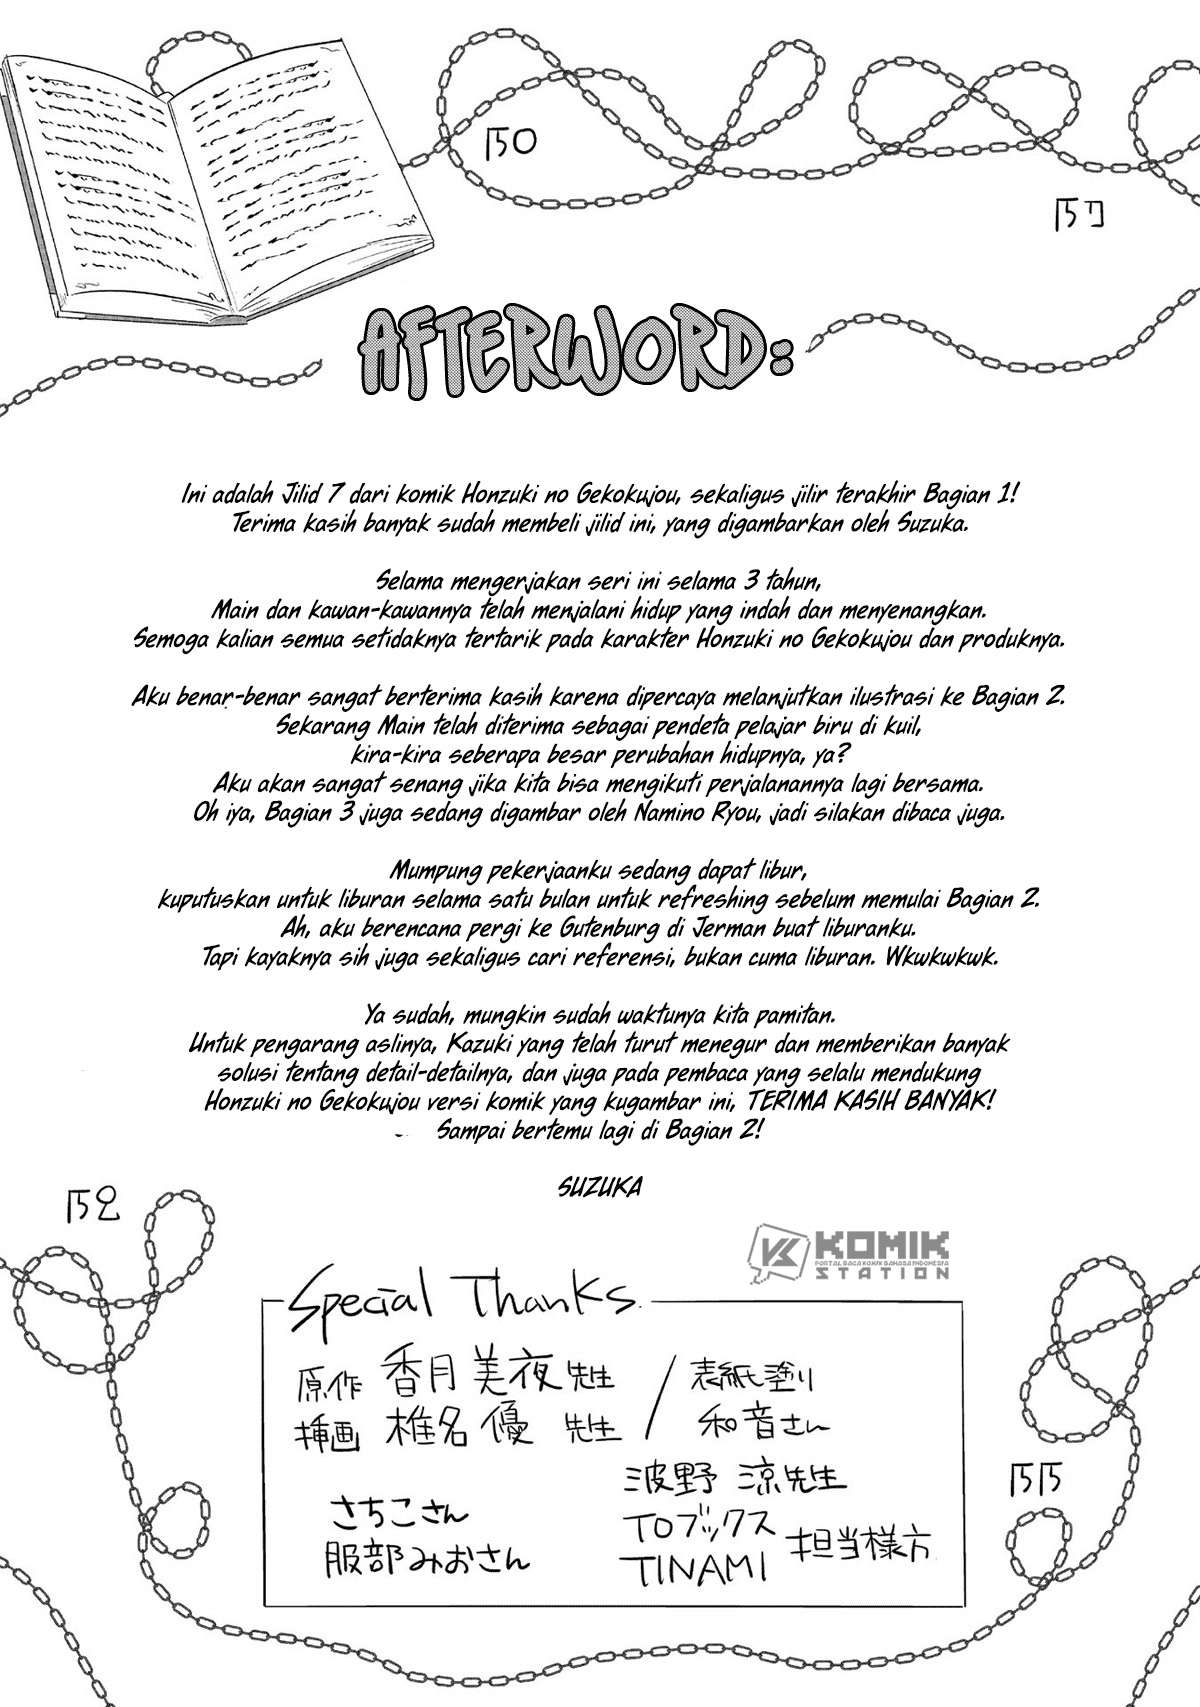 AFTERWORD:
Ini adalah Jilid 7 dari komik Honzuki no Gekokujou, sekaligus jilir terakhir Bagian 1!
Terima kasih banyak sudah membeli jilid ini, yang digambarkan oleh Suzuka.
Selama mengerjakan seri ini selama 3 tahun,
Main dan kawan-kawannya telah menjalani hidup yang indah dan menyenangkan.
Semoga kalian semua setidaknya tertarik pada karakter Honzuki no Gekokujou dan produknya.
Aku benar-benar sangat berterima kasih karena dipercaya melanjutkan ilustrasi ke Bagian 2.
Sekarang Main telah diterima sebagai pendeta pelajar biru di kuil,
kira-kira seberapa besar perubahan hidupnya, ya?
Aku akan sangat senang jika kita bisa mengikuti perjalanannya lagi bersama.
Oh iya, Bagian 3 juga sedang digambar oleh Namino Ryou, jadi silakan dibaca juga.
Mumpung pekerjaanku sedang dapat libur,
kuputuskan untuk liburan selama satu bulan untuk refreshing sebelum memulai Bagian 2.
Ah, aku berencana pergi ke Gutenburg di Jerman buat liburanku.
Tapi kayaknya sih juga sekaligus cari referensi, bukan cuma liburan. Wkwkwkwk.
Ya sudah, mungkin sudah waktunya kita pamitan.
Untuk pengarang aslinya, Kazuki yang telah turut menegur dan memberikan banyak
solusi tentang detail-detailnya, dan juga pada pembaca yang selalu mendukung
Honzuki no Gekokujou versi komik yang kugambar ini, TERIMA KASIH BANYAK!
Sampai bertemu lagi di Bagian 2!
SUZUKA
KOMIK
PORTAL BACA KOMIK BAHASA INDONESIA
STATION
Special Thanks
原作 香月美夜先生 / 表紙塗り
挿画 椎名優 先生 和音さん
波野 涼先生
さちこさん TOブックス
服部みおさん TINAMI 担当様方